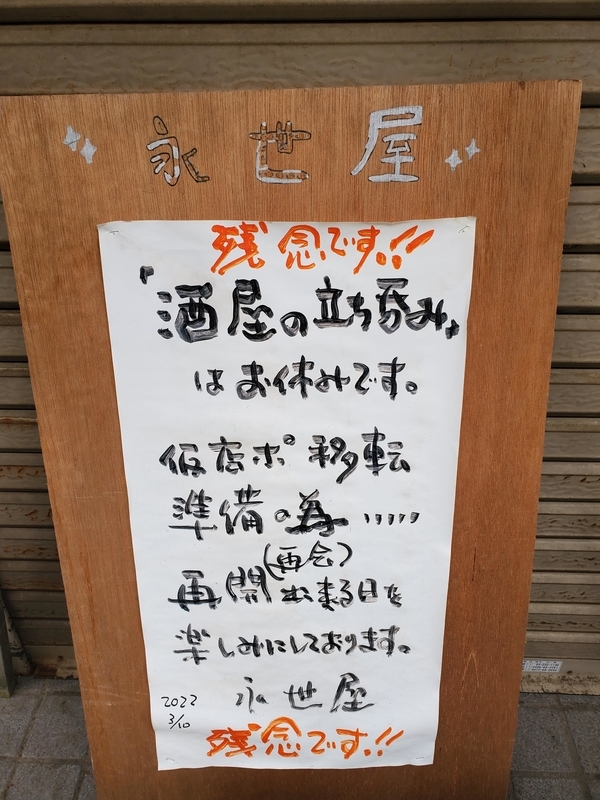 永世屋
残念です!!
「酒屋の立ち呑み」
はお休みです。
仮店ポ移転
準備の為……
(再会)
再開出来る日を
楽しみにしております。
永世屋
2022
3/10
残念です!!